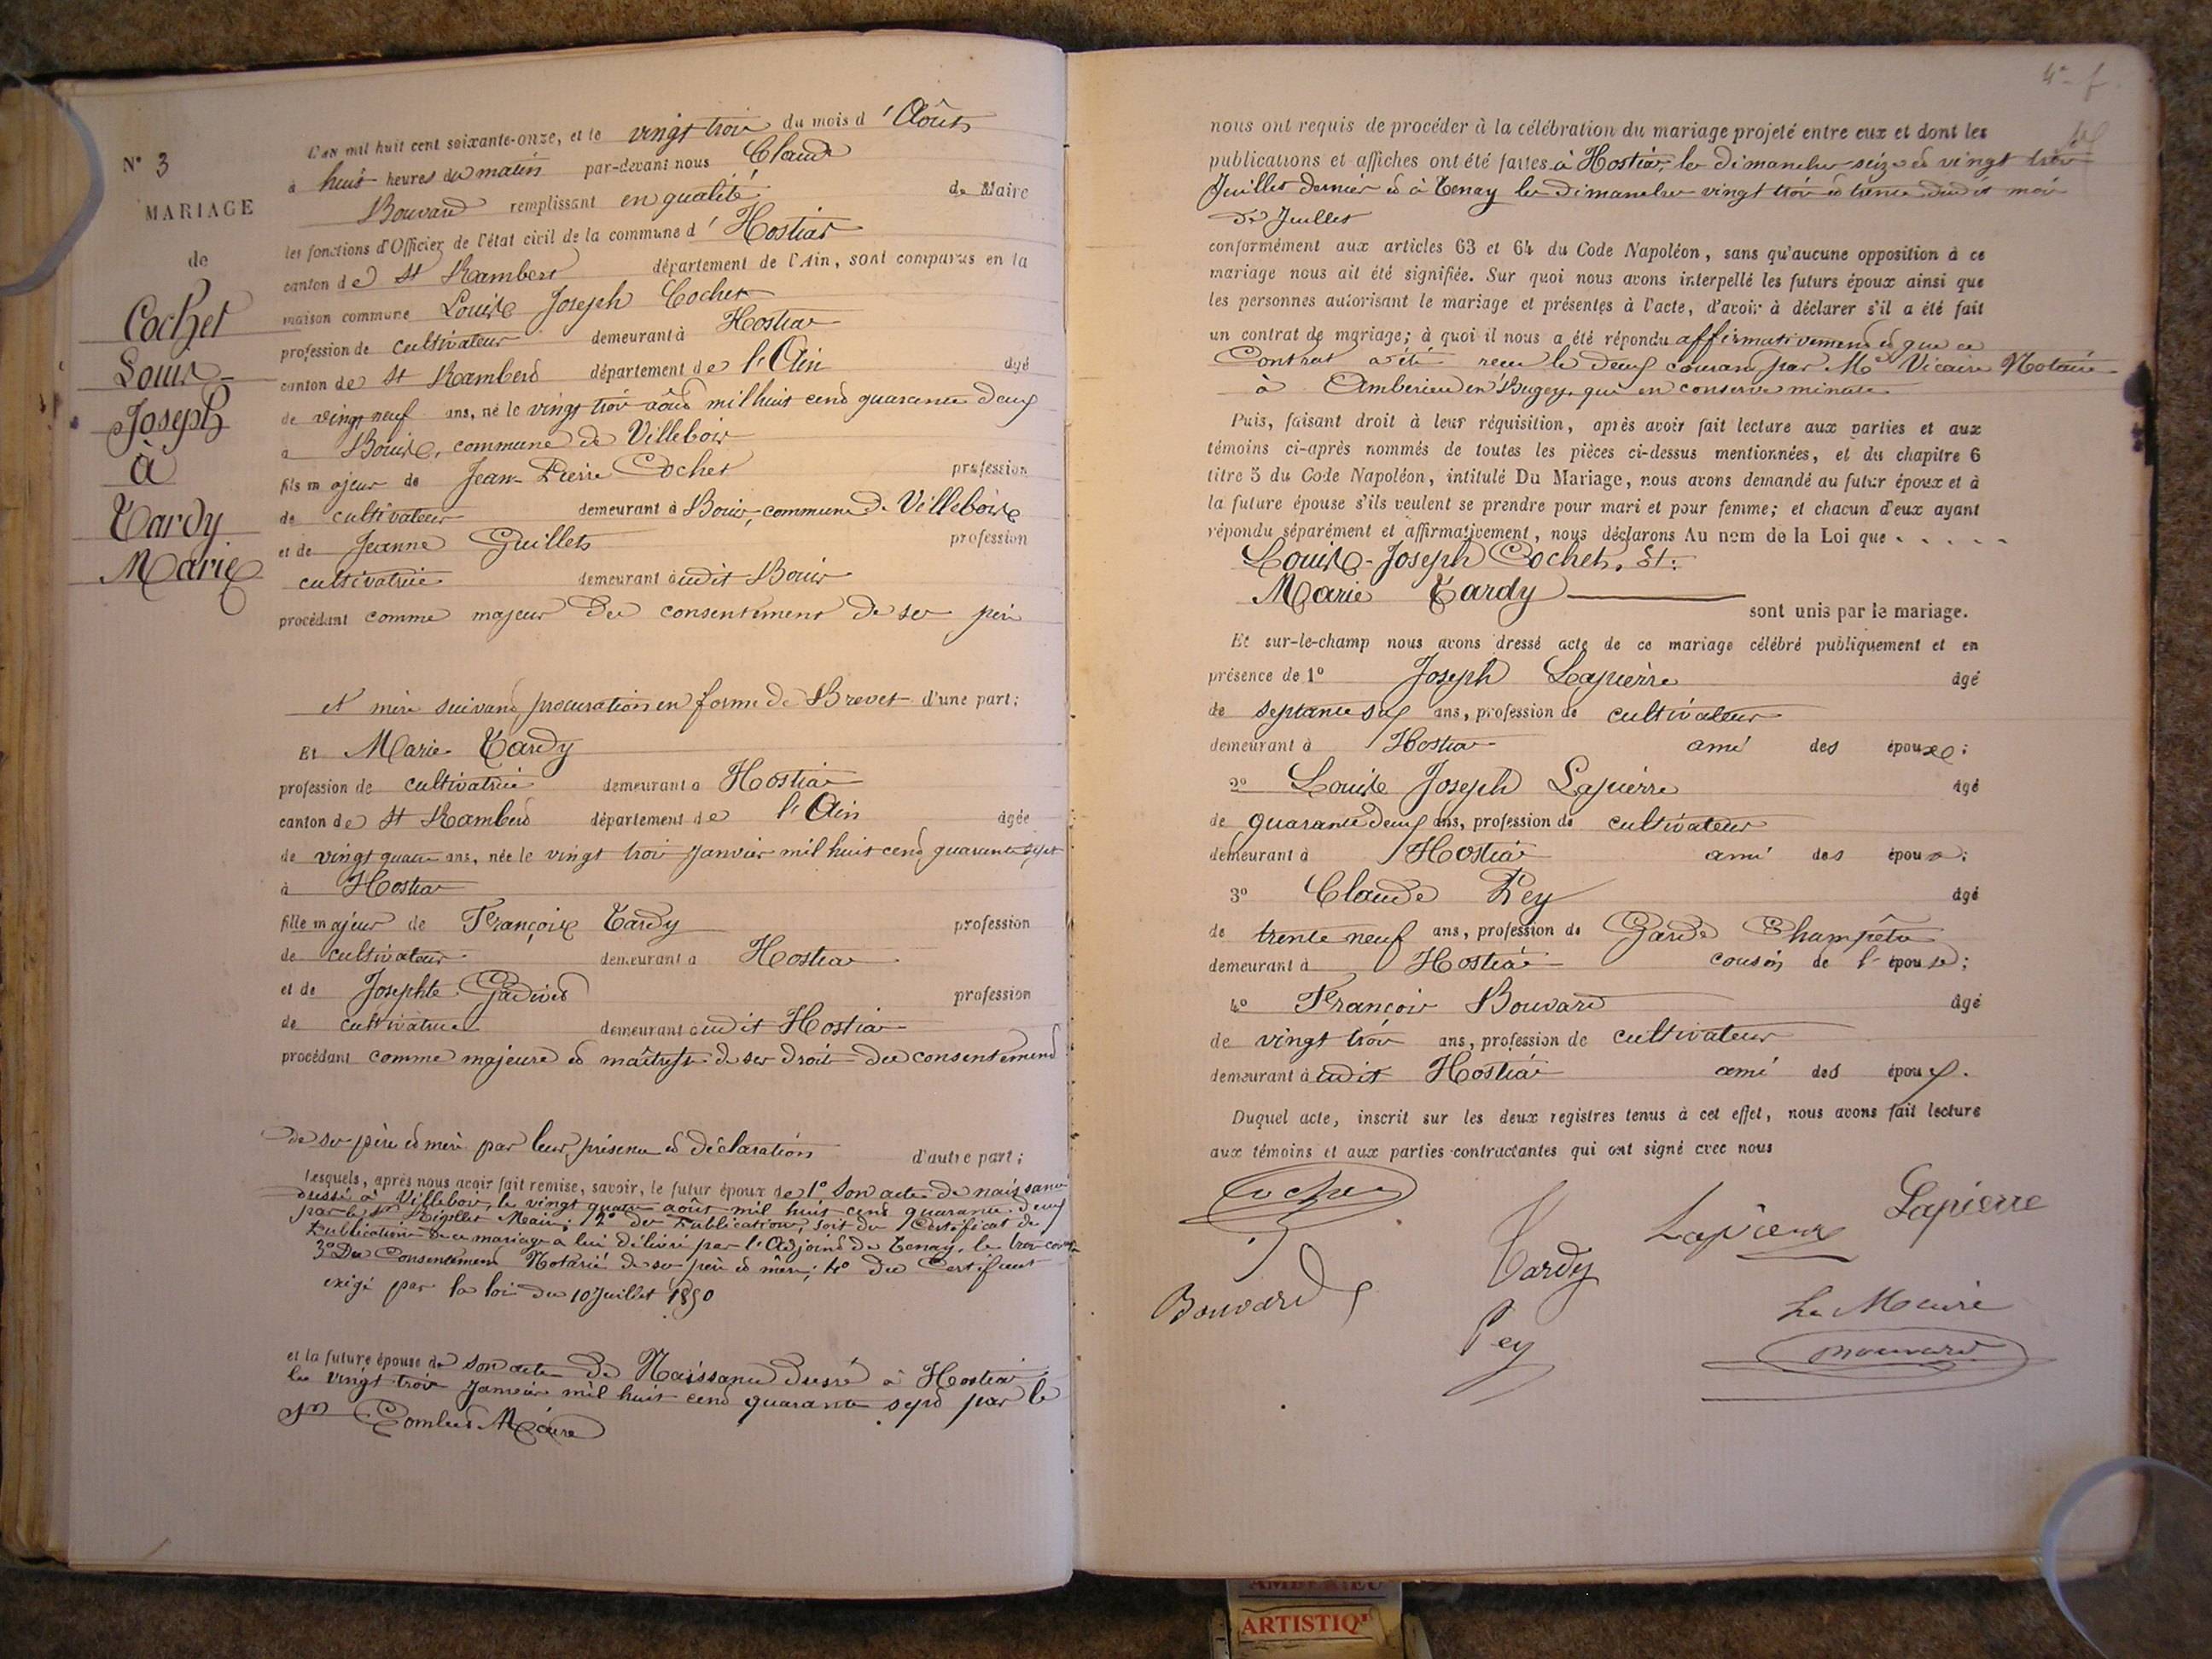 N° 3
MARIAGE
de
Cochet
Louis
Joseph
à
Tardy
Marie
L'an mil huit cent soixante-onze, et le vingt trois du mois d'Août
à huit heures du matin par-devant nous Claude
Bouvard remplissant en qualité de Maire
les fonctions d'Officier de l'état civil de la commune d'Hostias
canton de St Rambert département de l'Ain, sont comparus en la
maison commune Louis Joseph Cochet
profession de cultivateur demeurant à Hostias
canton de St Rambert département de l'Ain âgé
de vingt neuf ans, né le vingt trois août mil huit cent quarante deux
à Bouis, commune de Villebois
fils majeur de Jean Pierre Cochet profession
de cultivateur demeurant à Bouis, commune de Villebois
et de Jeanne Guillet profession
cultivatrice demeurant audit Bouis
procédant comme majeur du consentement de ses père
et mère suivant procuration en forme de Brevet d'une part;
Et Marie Tardy
profession de cultivatrice demeurant à Hostias
canton de St Rambert département de l'Ain âgée
de vingt quatre ans, née le vingt trois Janvier mil huit cent quarante sept
à Hostias
fille majeur de François Tardy profession
de cultivateur demeurant à Hostias
et de Josephte profession
de cultivatrice demeurant audit Hostias
procédant comme majeure et maîtresse de ses droits du consentement
de ses père et mère par leur présence et déclaration d'autre part;
Lesquels, après nous avoir fait remise, savoir, le futur époux de 1° Son acte de naissance
dressé à Villebois, le vingt quatre août mil huit cent quarante deux
par le Sr Rigollet Maire; 2° des Publications, soit du Certificat de
Publication de ce mariage à lui délivré par l'Adjoint de Tenay, le trois courant
3° Du Consentement Notarié de ses père et mère; 4° du Certificat
exigé par la loi du 10 Juillet 1850
et la future épouse de son acte de Naissance dressé à Hostias
le vingt trois Janvier mil huit cent quarante sept par le
Sr Combet Maire
4e f
nous ont requis de procéder à la célébration du mariage projeté entre eux et dont les
publications et affiches ont été faites à Hostias, les dimanches seize et vingt trois
Juillet dernier et à Tenay les Dimanches vingt trois et trente dudit mois
de Juillet
conformément aux articles 63 et 64 du Code Napoléon, sans qu'aucune opposition à ce
mariage nous ait été signifiée. Sur quoi nous avons interpellé les futurs époux ainsi que
les personnes autorisant le mariage et présentes à l'acte, d'avoir à déclarer s'il a été fait
un contrat de mariage; à quoi il nous a été répondu affirmativement et que ce
Contrat a été recu le deux courant par Me Vicaire Notaire
à Amberieu en Bugey, qui en conserve minute
Puis, faisant droit à leur réquisition, après avoir fait lecture aux parties et aux
témoins ci-après nommés de toutes les pièces ci-dessus mentionnées, et du chapitre 6
titre 5 du Code Napoléon, intitulé Du Mariage, nous avons demandé au futur époux et à
la future épouse s'ils veulent se prendre pour mari et pour femme; et chacun d'eux ayant
répondu séparément et affirmativement, nous déclarons Au nom de la Loi que . . . . .
Louis-Joseph Cochet, Et:
Marie Tardy
sont unis par le mariage.
Et sur-le-champ nous avons dressé acte de ce mariage célébré publiquement et en
présence de 1° Joseph Lapierre âgé
de septante six ans, profession de cultivateur
demeurant à Hostias ami des époux;
2° Louis Joseph Lapierre âgé
de quarante deux ans, profession de cultivateur
demeurant à Hostias ami des époux;
3° Claude Pey âgé
de trente neuf ans, profession de Garde Champêtre
demeurant à Hostias cousin de l'épouse;
4° François Bouvard âgé
de vingt trois ans, profession de cultivateur
demeurant audit Hostias ami des époux.
Duquel acte, inscrit sur les deux registres tenus à cet effet, nous avons fait lecture
aux témoins et aux parties contractantes qui ont signé avec nous
Cochet
Tardy
Lapierre
Lapierre
Bouvard
Pey
Le Maire
Bouvard
AMBERIEU
ARTISTIQ